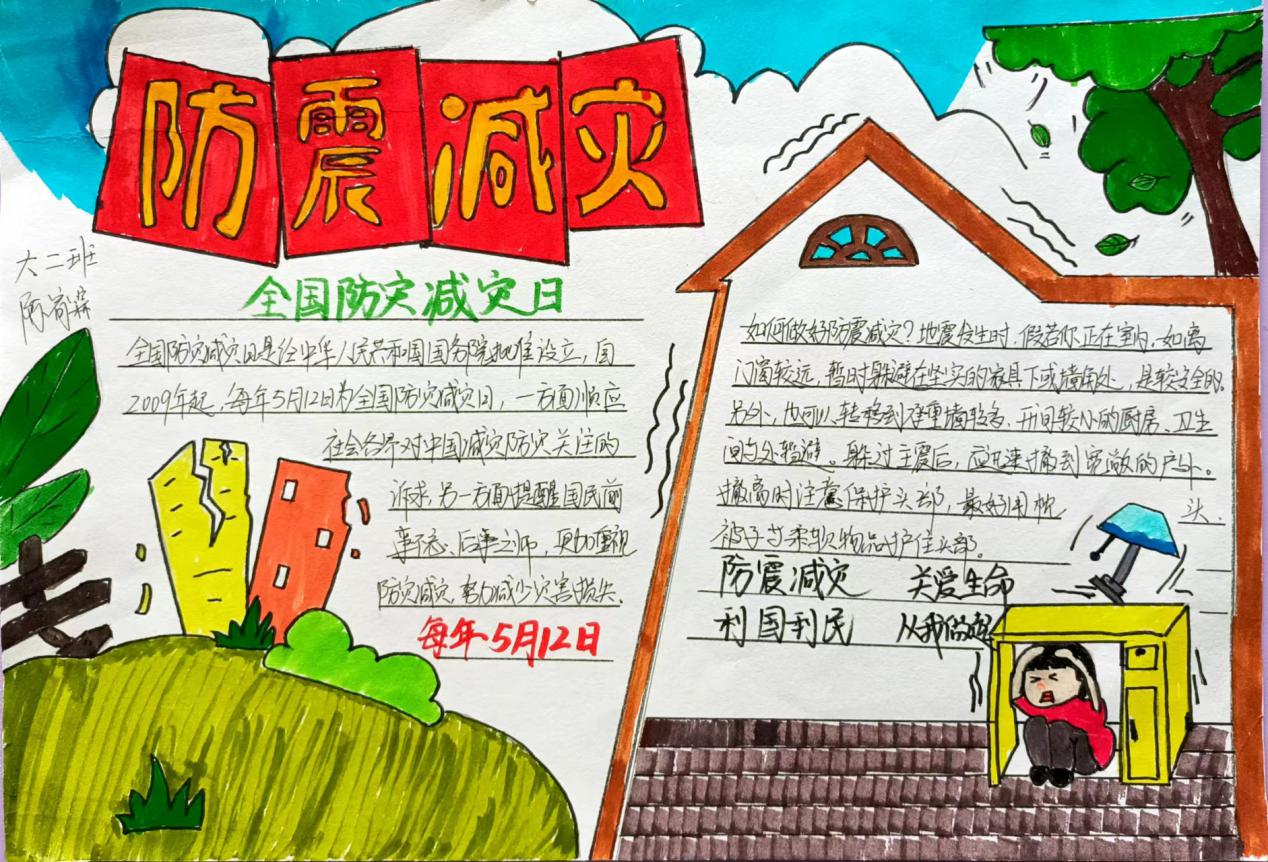 防震减灾
大二班
全国防灾减灾日
全国防灾减灾日是经中华人民共和国国务院批准设立,自
2009年起,每年5月12日为全国防灾减灾日,一方面顺应
社会各界对中国减灾防灾关注的
诉求,另一方面提醒国民前
事不忘、后事之师,更加重视
防灾减灾,努力减少灾害损失。
每年5月12日
如何做好防震减灾?地震发生时,假若你正在室内,如离
门窗较远,暂时躲避在坚实的家具下或墙角处,是较安全的。
另外,也可以转移到承重墙较多、开间较小的厨房、卫生
间去处暂避。躲过主震后,应迅速撤到宽敞的户外。
撤离时注意保护头部,最好用枕头、
被子等柔软物品护住头部。
防震减灾 关爱生命
利国利民 从我做起